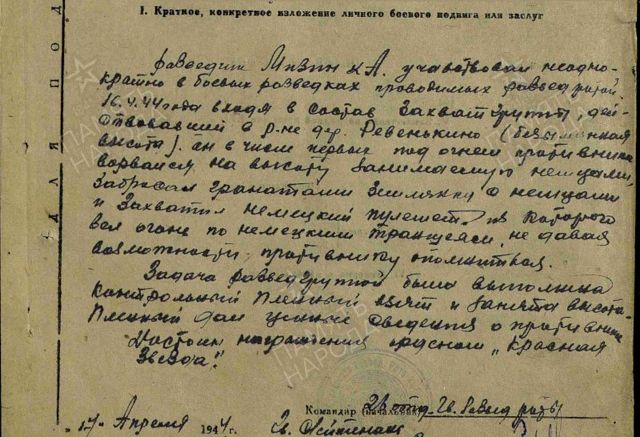 I. Краткое, конкретное изложение личного боевого подвига или заслуг
Разведчик Мизин К А. участвовал неодно-
кратно в боевых разведках проводимых разведротой.
16.4.44 года входя в состав Захватгруппы, дей-
ствовавшей в р-не дер. Ревенькино (безымянная
высота). он в числе первых под огнем противника
ворвался на высоту занимаемую немцами,
забросал гранатами землянку с немцами
и захватил немецкий пулемет из которого
вел огонь по немецким траншеям, не давая
возможности противнику опомниться.
Задача разведгруппой была выполнена
контрольный пленный взят и занята высота.
Пленный дал ценные сведения о противнике.
Достоин награждения орденом „Красная
Звезда".
Командир (начальник) 28 отд. Гв. Развед роты
"17" Апреля 1944 г. Гв. Лейтенант
ДЛЯ ПОД
ПАМЯТЬ НАРОДА